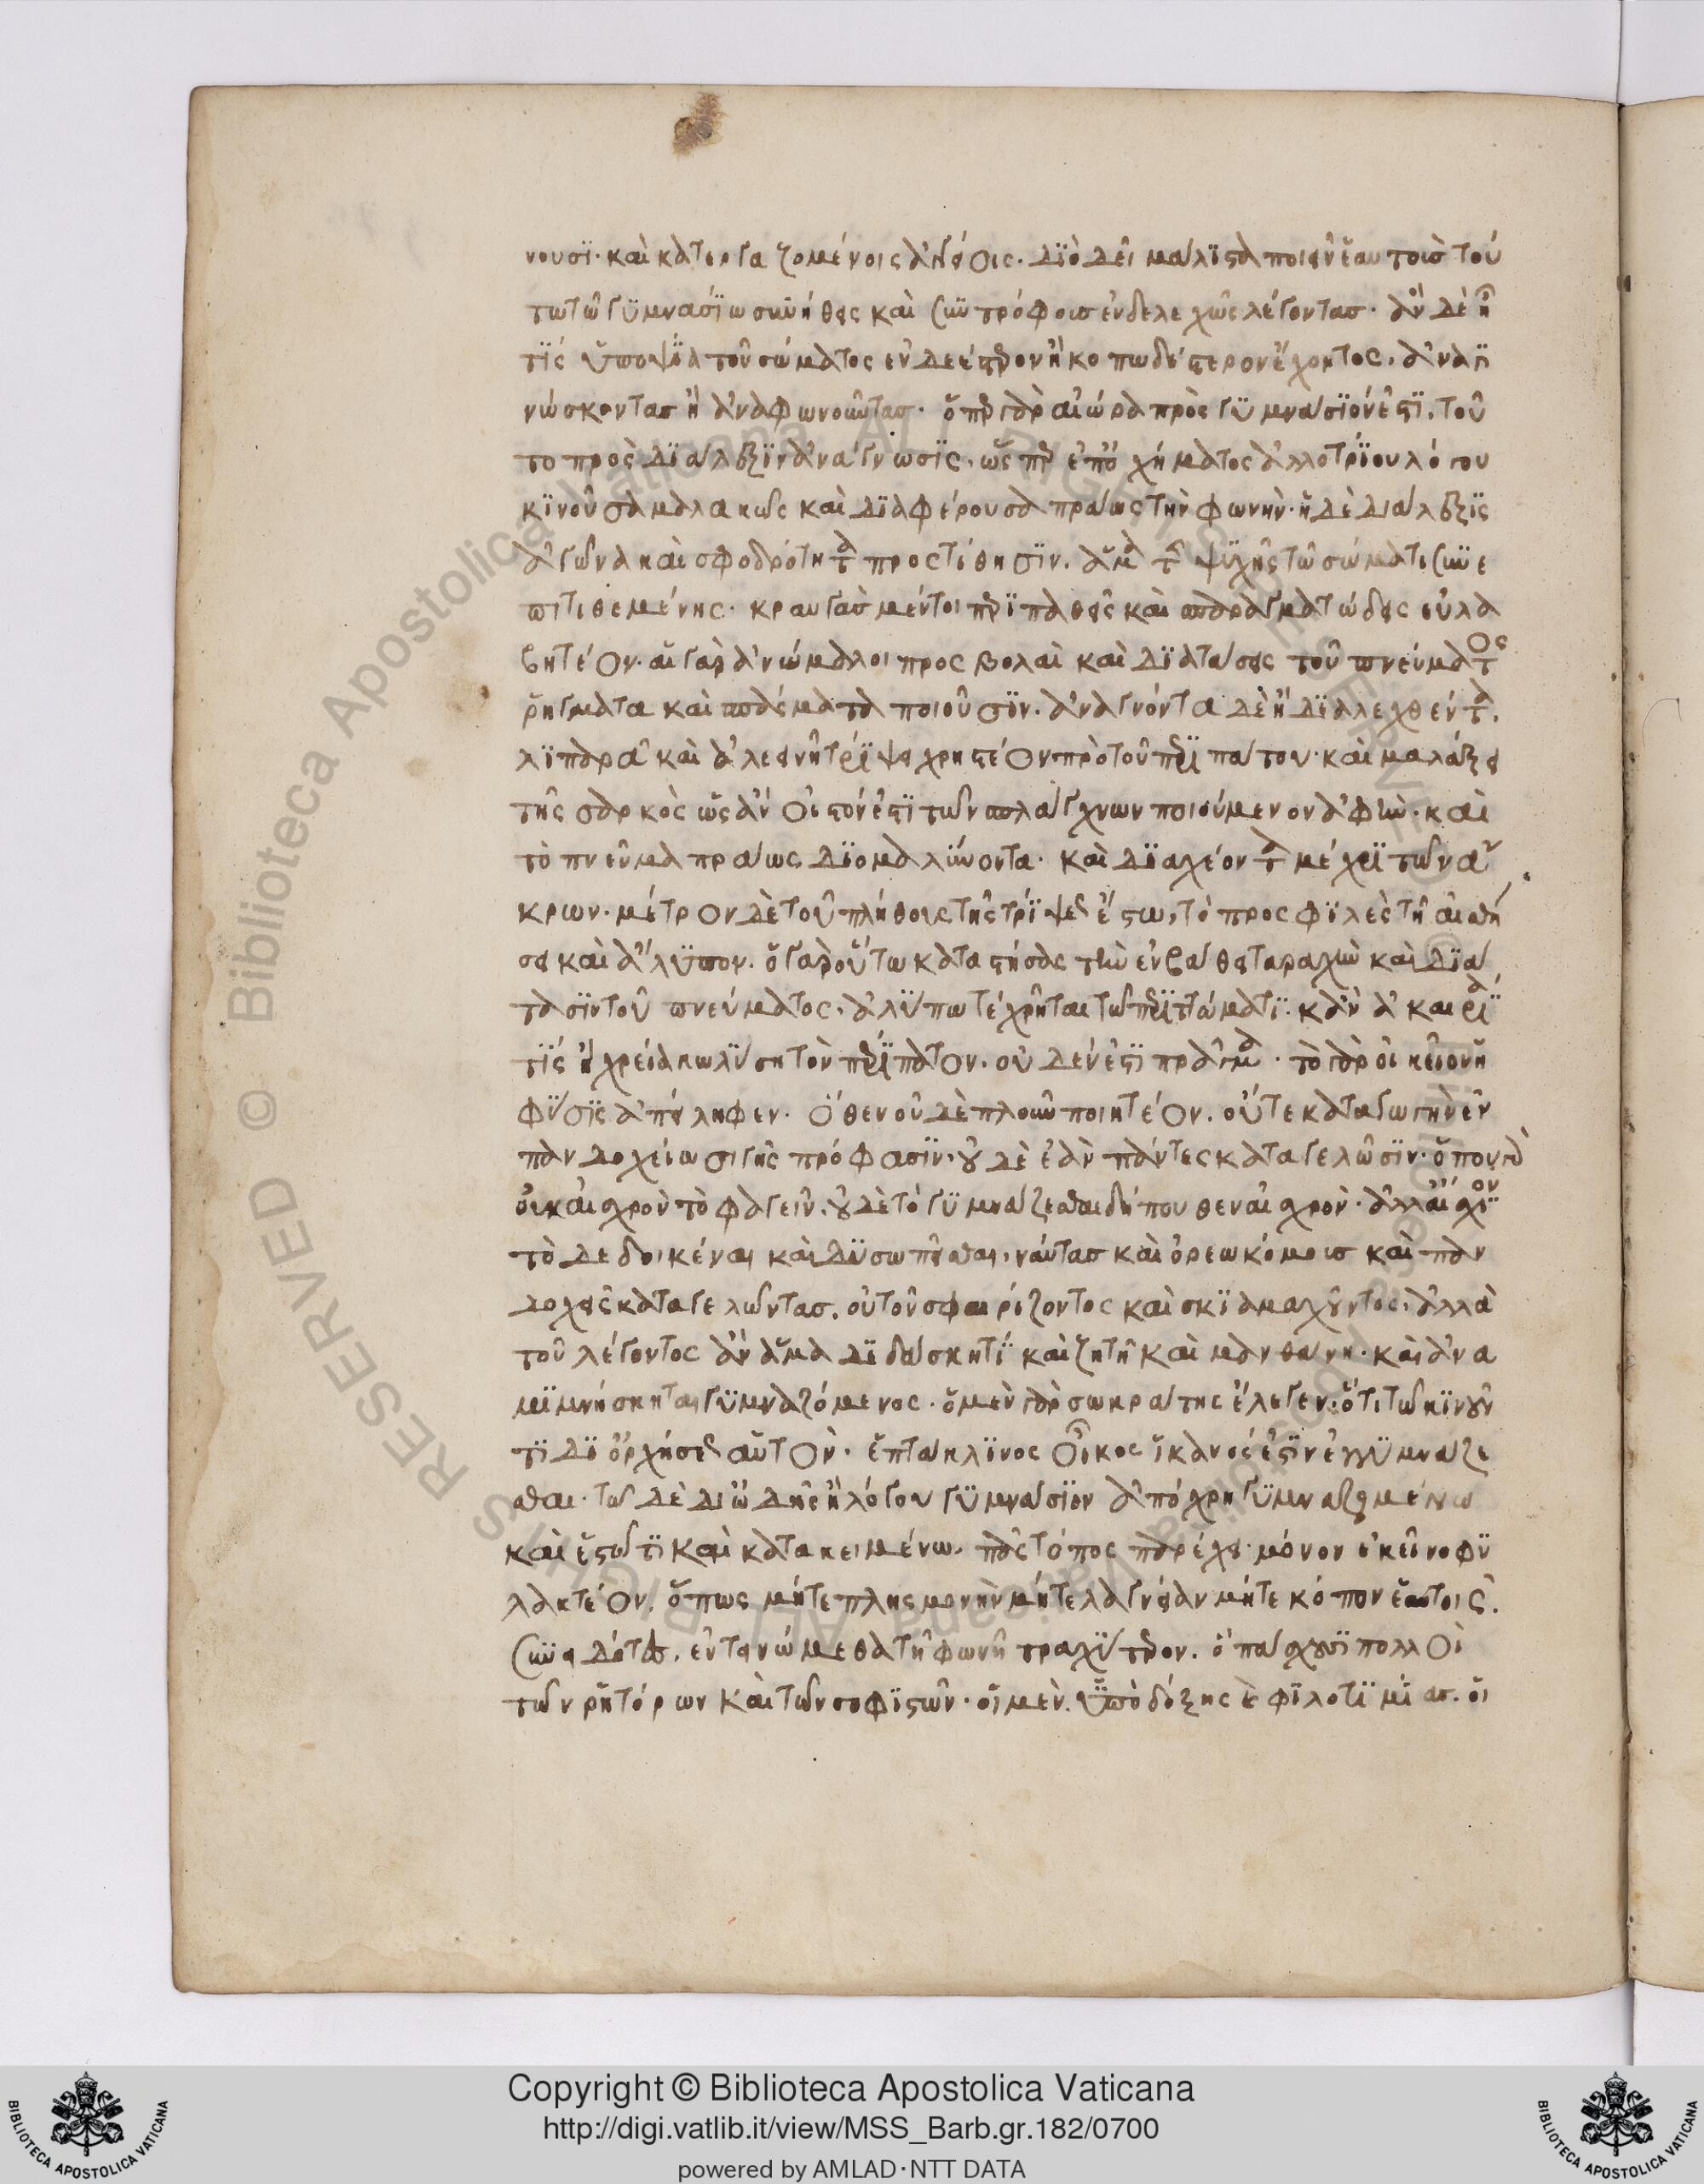 νουσϊ· καὶ κατεργαζομένοις ἀλείφοις. Διὸ δεῖ μάλϊστα ποιεῖν ἑαυτοὺσ τού
τω τῶ γϋμνασίϊω συνήθεις καὶ συντρόφουσ ἐνδελεχῶς λέγοντασ· ἂν δὲ ἦ
τϊς ὑποψΐα τοῦ σώματος ἐνδεέστερον ἢ κοπωδέστερον ἔχοντος, ἀναγϊ
νώσκοντασ ἢ ἀναφωνοῦντασ· ὅπερ γὰρ αἰώρα πρὸς γϋμνάσϊόν ἐστϊ, τοῦ
το πρὸς διάλεξϊν ἀνάγνωσϊς, ὥσπερ ἐπ' ὀχήματος ἀλλοτρΐου λόγου
κϊνοῦσα μαλακῶς καὶ διαφέρουσα πράως τὴν φωνὴν· ἡ δὲ διάλεξϊς
ἀγῶνα καὶ σφοδρότητα προςτίθησϊν. ἅμα τῆς ψϋχῆς τῶ σώματι συνε
πιτιθεμένης· κραυγὰσ μέντοι περϊπαθεῖς καὶ σπαραγματώδεις εὐλα
βητέον· αἱ γὰρ ἀνώμαλοι προςβολαὶ καὶ διατάσεις τοῦ πνεύματος
ῥήγματα καὶ σπάσματα ποιοῦσϊν. ἀναγνόντα δὲ ἢ δϊαλεχθέντα.
λϊπαρᾶ καὶ ἀλεεινῆ τρίψει χρηστέον πρὸ τοῦ περιπάτου· καὶ μαλάξει
τῆς σαρκὸς ὡς ἀνοιστόν ἐστϊ τῶν σπλάγχνων ποιούμενον ἀφὴν· καὶ
τὸ πνεῦμα πράως διομαλΰνοντα· καὶ διαχέοντα μέχρϊ τῶν ἄ
κρων· μέτρον δὲ τοῦ πλήθους τῆς τρίψεως ἔστω, τὸ προςφϊλὲς τῆ αἰσθή
σει καὶ ἄλϋπον. ὁ γὰρ οὕτω καταστήσας τὴν ἐν βάθει ταραχὴν καὶ διά
τασϊν τοῦ πνεύματος, ἀλΰπω τέχρηται τῶ περιττώματϊ· κἂν ἀκαιρΐα
τϊς ἢ χρεία κωλΰση τὸν περΐπατον. οὐδέν ἐστϊ πρᾶγμα· τὸ γὰρ οἰκεῖον ἡ
φΰσϊς ἀπείληφεν. ὅθεν οὐδὲ πλοῦν ποιητέον. οὔτε καταγωγὴν ἐν
πανδοχείω σιγῆς πρόφασϊν, οὐδὲ ἐὰν πάντες καταγελῶσϊν· ὅπου γὰρ
οὐκ αἰσχρὸν τὸ φαγεῖν, οὐδὲ τὸ γϋμνάζεσθαι δήπουθεν αἰσχρὸν· ἀλλ' αἴσχϊον
τὸ δεδοικέναι καὶ δϋσωπεῖσθαι, ναύτασ καὶ ὀρεωκόμουσ καὶ παν
δοχεῖς καταγελῶντασ. οὐ τοῦ σφαιρίζοντος καὶ σκϊαμαχοῦντος, ἀλλὰ
τοῦ λέγοντος ἂν ἅμα διδάσκη τΐ καὶ ζητῆ καὶ μανθάνη· καὶ ἀνα
μϊμνήσκηται γϋμναζόμενος· ὁ μὲν γὰρ σωκράτης ἔλεγεν· ὅτι τῶ κϊνοῦν
τϊ δι' ὀρχήσεως αὑτὸν· ἑπτάκλϊνος οἶκος ἱκανός ἐστϊν ἐγγϋμνάζε
σθαι· τῶ δὲ δι' ὠδῆς ἢ λόγου γϋμνάσϊον ἀπόχρη γϋμναζομένω
καὶ ἑστῶτϊ καὶ κατακειμένω, πᾶς τόπος παρέχει· μόνον ἐκεῖνο φϋ
λακτέον. ὅπως μήτε πλησμονὴν μήτε λαγνείαν μήτε κόπον ἑαυτοῖς.
συνειδότες. ἐντεινώμεθα τῆ φωνῆ τραχΰτερον. ὃ πάσχουσϊ πολλοὶ
τῶν ῥητόρων καὶ τῶν σοφϊστῶν· οἱ μὲν. ὑπὸ δόξης καὶ φϊλοτϊμΐασ. οἱ
Copyright © Biblioteca Apostolica Vaticana
http://digi.vatlib.it/view/MSS_Barb.gr.182/0700
powered by AMLAD·NTT DATA